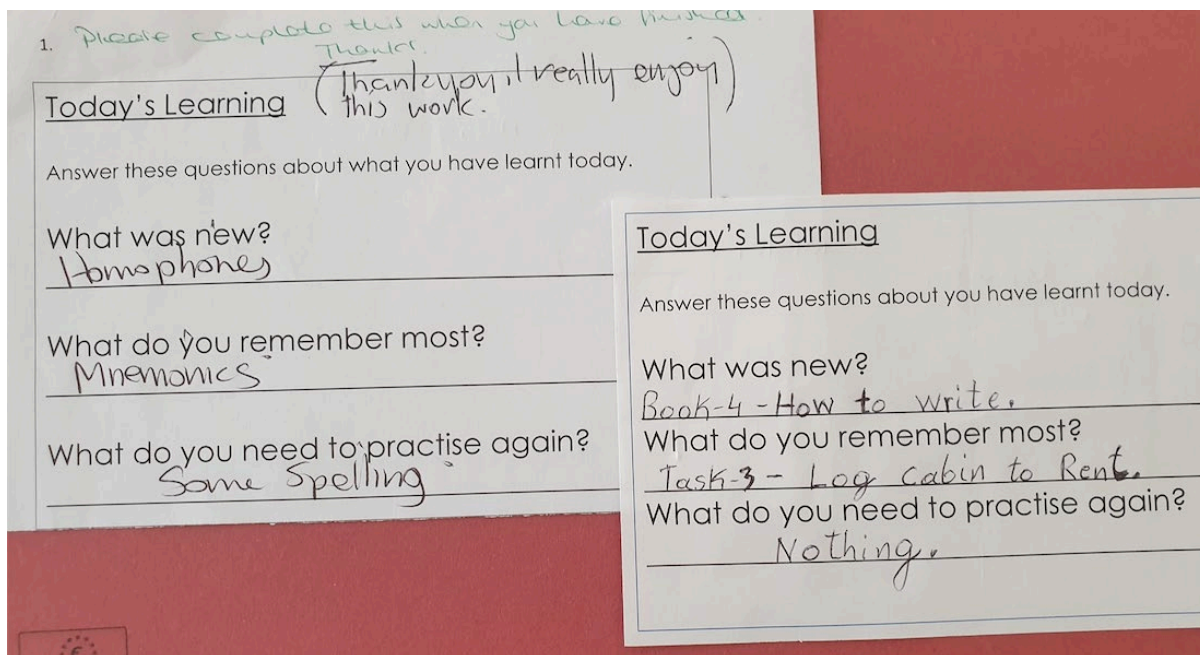 1. Please complete this when you have finished.
Thanks.
(Thankyou, I really enjoy)
this work.
Today's Learning
Answer these questions about what you have learnt today.
What was new?
Homophones
What do you remember most?
Mnemonics
What do you need to practise again?
Some Spelling
Today's Learning
Answer these questions about you have learnt today.
What was new?
Book-4 - How to write.
What do you remember most?
Task-3 - Log Cabin to Rent.
What do you need to practise again?
Nothing.